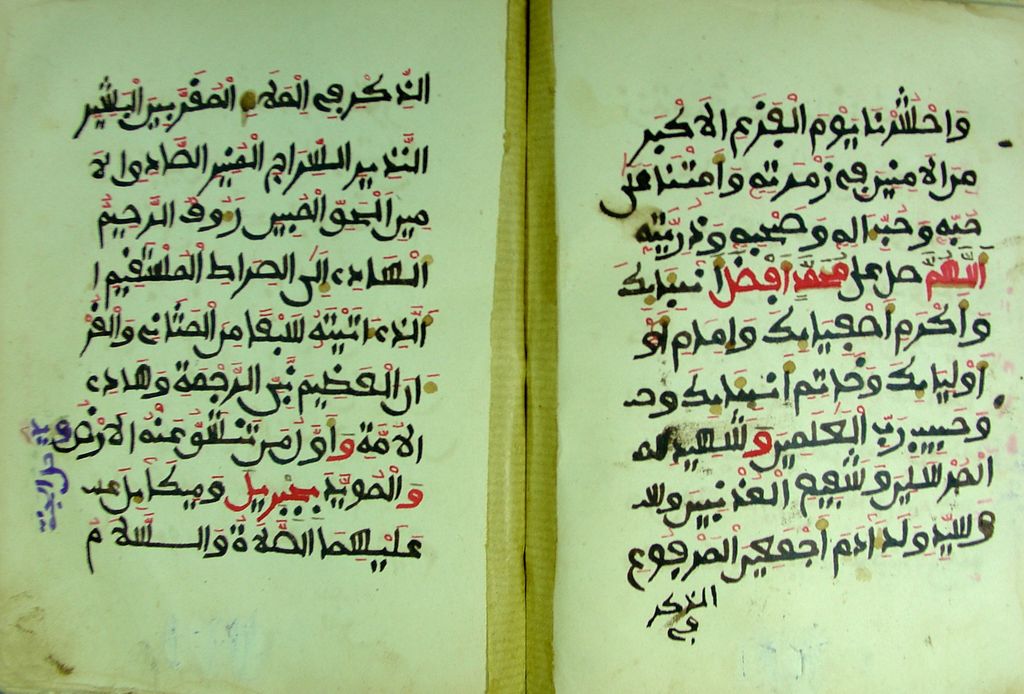 وَاحْشُرْنَا يَوْمَ الْفَزَعِ الاَكْبَرِ
مِنَ الاَمِنِينَ فِي زُمْرَتِهِ وَامِتْنَا عَلَى
حُبِّهِ وَحُبِّ الِهِ وَصَحْبِهِ وَذُرِّيَّتِهِ
اَللَّهُمَّ صل على مُحَمَّدٍ اَفْضَلِ اَنْبِيَايِكَ
وَاَكْرَمِ اَصْفِيَايِكَ وَاِمَامِ اَوْ
اَوْلِيَايِكَ وَخَاتِمِ اَنْبِيَايِكَ وحـ
وَحَبِيبِ رَبِّ الْعَلَمِينَ وَشَهِيدِ
الْمُرْسَلِينَ وَشَفِيعِ الْمُذْنِبِينَ وسـ
وَسَيِّدِ وَلَدِ اَدَمَ اَجْمَعِينَ الْمَرْفُوعِ
الذكر
في
الذِّكْرِ فِي الْمَلَا الْمُقَرَّبِينَ الْبَشِيرِ
النَّذِيرِ السِّرَاجِ الْمُنِيرِ الصَّادِوِ الاَ
مِينِ الْحَوِّ الْمُبِينِ رَءُوفِ الرَّحِيمِ
الْهَادِي اِلَى الصِّرَاطِ الْمُسْتَقِيمِ ا
اَلَّذِي اتَيْتَهُ سَبْعًا مِنَ الْمَثَانِي وَالْقُرْ
انَ الْعَظِيمَ نَبِيِّ الرَّحْمَةِ وَهَادِي
الاُمَّةِ وَاَوَّلِ مَنْ تَنْشَقُّ عَنْهُ الاَرْضُ
وَالْمُوَيَّدِ بِجِبْرِيلَ وَمِيكَايِلَ عـ
عَلَيْهِمَا الصَّلَاةُ وَالسَّلَامُ